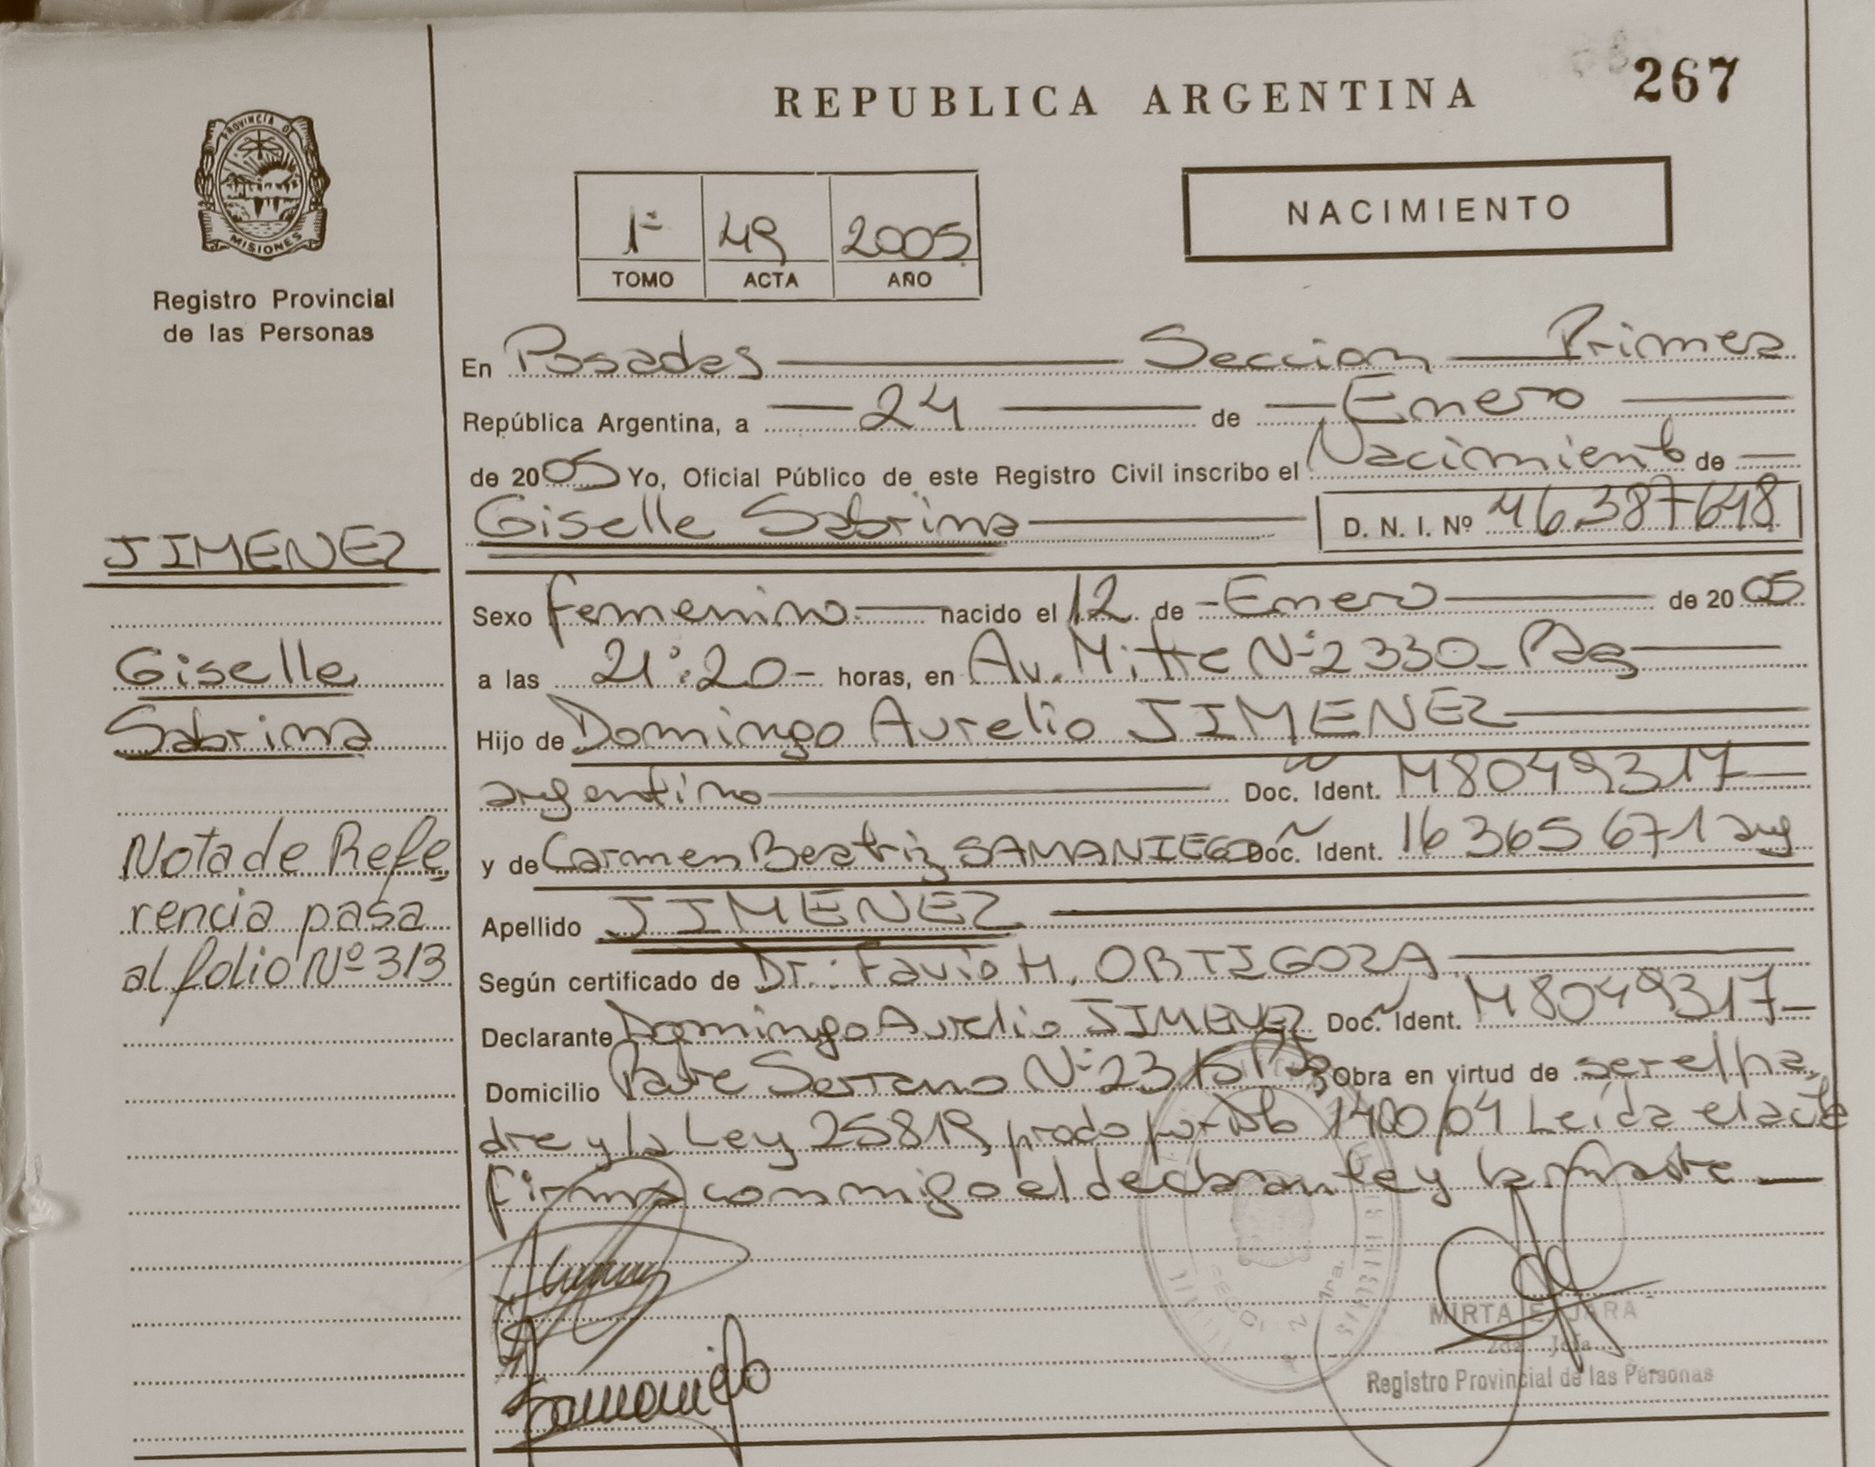 REPUBLICA ARGENTINA
267
PROVINCIA DE
MISIONES
Registro Provincial
de las Personas
NACIMIENTO
1º 49 2005
TOMO ACTA AÑO
En Posadas Seccion Primera
República Argentina, a 24 de Enero
de 2005 Yo, Oficial Público de este Registro Civil inscribo el Nacimiento de
Giselle Sabrina D. N. I. Nº 46.387648
JIMENEZ
Giselle
Sabrina
Nota de Refe
rencia pasa
al folio Nº 313
Sexo femenino nacido el 12 de Enero de 2005
a las 21:20 horas, en Av. Mitre Nº 2330 Pdas
Hijo de Domingo Aurelio JIMENEZ
argentino Doc. Ident. M8049317
y de Carmen Beatriz SAMANIEGO Doc. Ident. 16 365 671 arg
Apellido JIMENEZ
Según certificado de Dr. Favio H. ORTIGOZA
Declarante Domingo Aurelio JIMENEZ Doc. Ident. M8049317
Domicilio Padre Serrano Nº 2315 Obra en virtud de ser el pa
dre y la Ley 25819, 1400/04 Leída el acta
firma conmigo el declarante y la madre
Samaniego
MIRTA E. JARA
2da. Jefa
Registro Provincial de las Personas